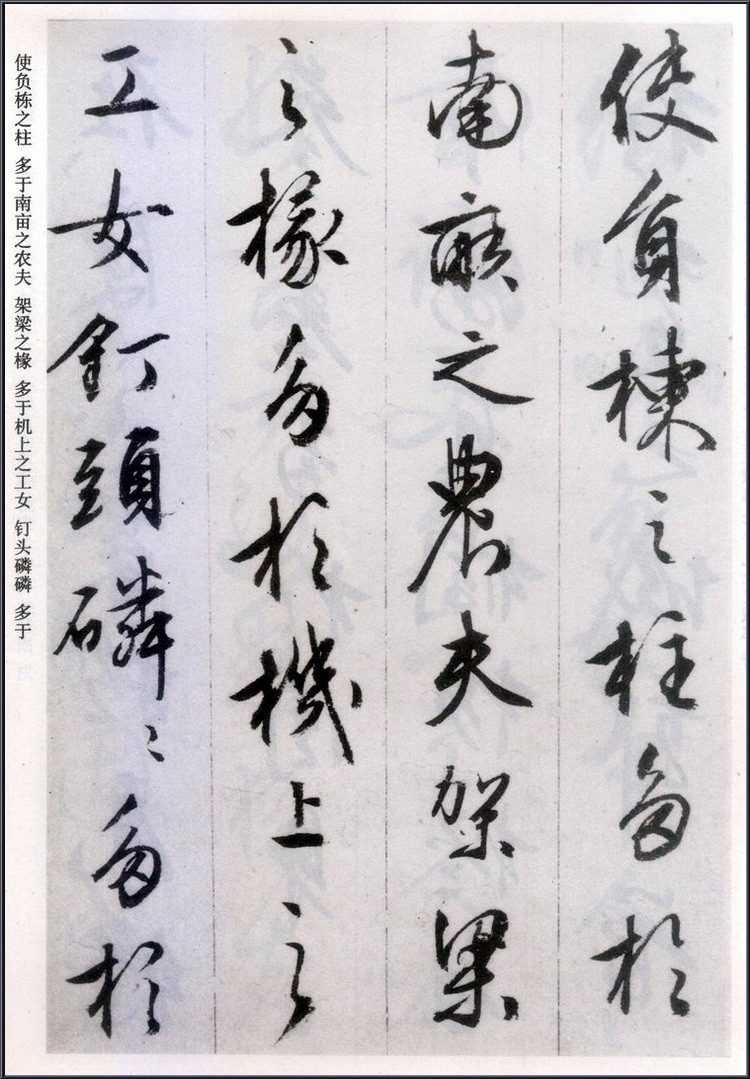 使負棟之柱多於
南畝之農夫架梁
之椽多於機上之
工女釘頭磷々多於
使负栋之柱 多于南亩之农夫 架梁之椽 多于机上之工女 钉头磷磷 多于